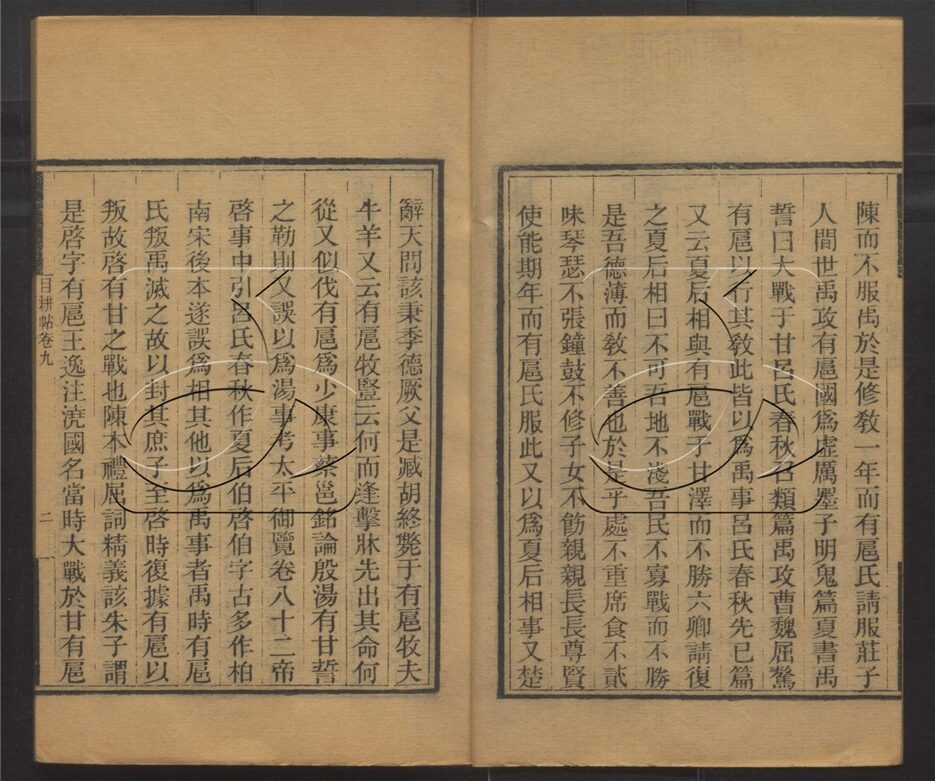 陳而不服禹於是修敎一年而有扈氏請服莊子
人間世禹攻有扈國爲虛厲墨子明鬼篇夏書禹
誓曰大戰于甘呂氏春秋召類篇禹攻曹魏屈驁
有扈以行其敎此皆以爲禹事呂氏春秋先已篇
又云夏后相與有扈戰于甘澤而不勝六卿請復
之夏后相曰不可吾地不淺吾民不寡戰而不勝
是吾德薄而敎不善也於是乎處不重席食不貳
味琴瑟不張鐘鼓不修子女不飭親親長長尊賢
使能期年而有扈氏服此又以爲夏后相事又楚
辭天問該秉季德厥父是臧胡終斃于有扈牧夫
牛羊又云有扈牧豎云何而逢擊牀先出其命何
從又似伐有扈爲少康事蔡邕銘論殷湯有甘誓
之勒則又誤以爲湯事考太平御覽卷八十二帝
啓事中引呂氏春秋作夏后伯啓伯字古多作柏
南宋後本遂誤爲相其他以爲禹事者禹時有扈
氏叛禹滅之故以封其庶子至啓時復據有扈以
叛故啓有甘之戰也陳本禮屈詞精義該朱子謂
是啓字有扈王逸注澆國名當時大戰於甘有扈
目耕帖卷九
二